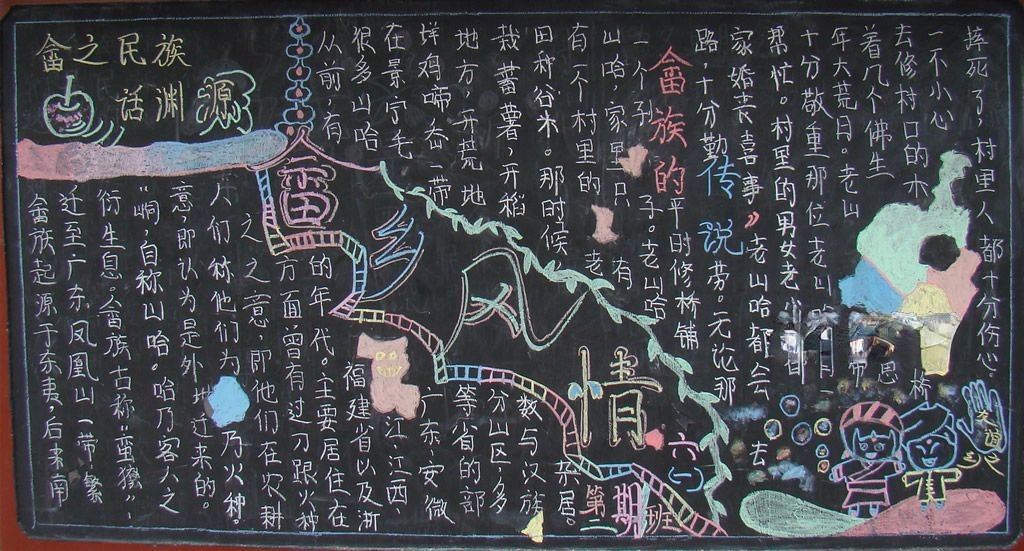 畲之民族
话渊源
畲乡风情
畲族起源于东夷,后来南
迁至广东凤凰山一带繁
衍生息。畲族古称"蛮獠"、
"峒",自称山哈。哈乃客人之
意,即认为是外地迁来的。
人们称他们为 乃火种
之意,即他们在农耕
方面曾有过刀跟火种
的年代。主要居住在
福建省以及浙
江江西、
广东、安微
等省的部
分山区,多
数与汉族
杂居。
畲族的传说
从前,有
很多山哈
在景宁毛
垟鸡啼岙一带
地方,开荒地
栽蕃薯,开稻
田种谷米。那时候
有一个村里的老
山哈,家里只有
一个子子。老山哈
平时修桥铺
路,十分勤劳。无论那
家婚丧喜事,老山哈都会去
帮忙。村里的男女老少
十分敬重那位老山
年大荒日。老山
着几个佛生
去修村口的木桥
一不小心
摔死了,村里人都十分伤心。
六(一)班
第二期